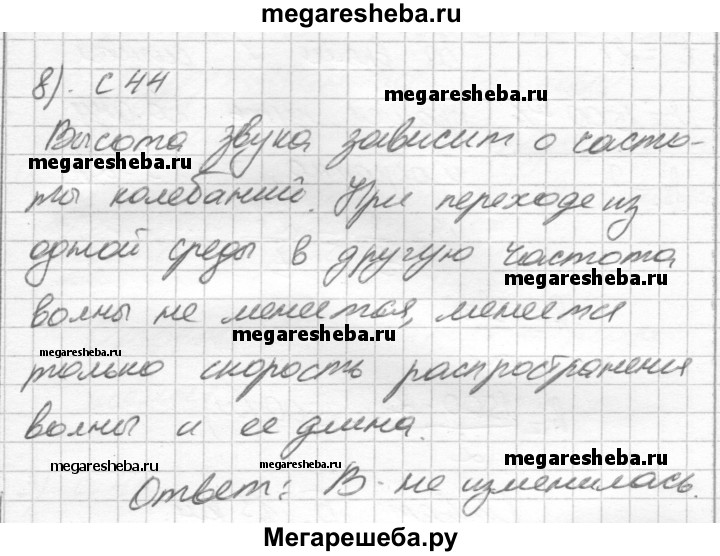 megaresheba.ru
8). С 44
megaresheba.ru
Высота звука зависит о часто-
megaresheba.ru
ты колебаний. При переходе из
одной среды в другую частота
megaresheba.ru
волны не менеется, менеется
megaresheba.ru
megaresheba.ru
только скорость распространения
волны и ее длина.
megaresheba.ru megaresheba.ru megaresheba.ru
Ответ: В - не изменилась.
Мегарешеба.ру